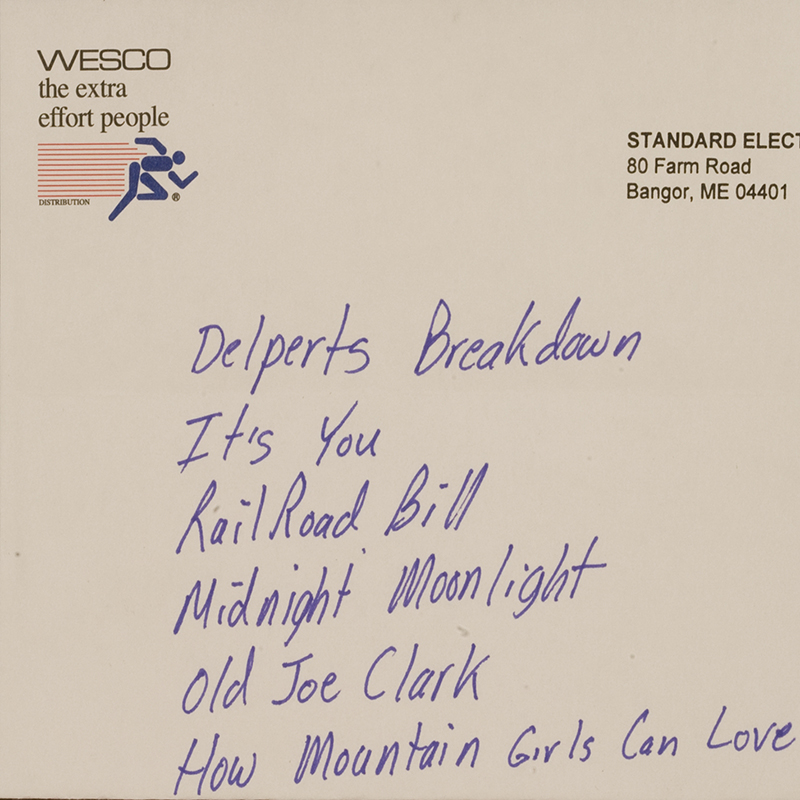 WESCO
the extra
effort people
DISTRIBUTION
®
STANDARD ELECT
80 Farm Road
Bangor, ME 04401
Delperts Breakdown
It's You
RailRoad Bill
Midnight Moonlight
Old Joe Clark
How Mountain Girls Can Love